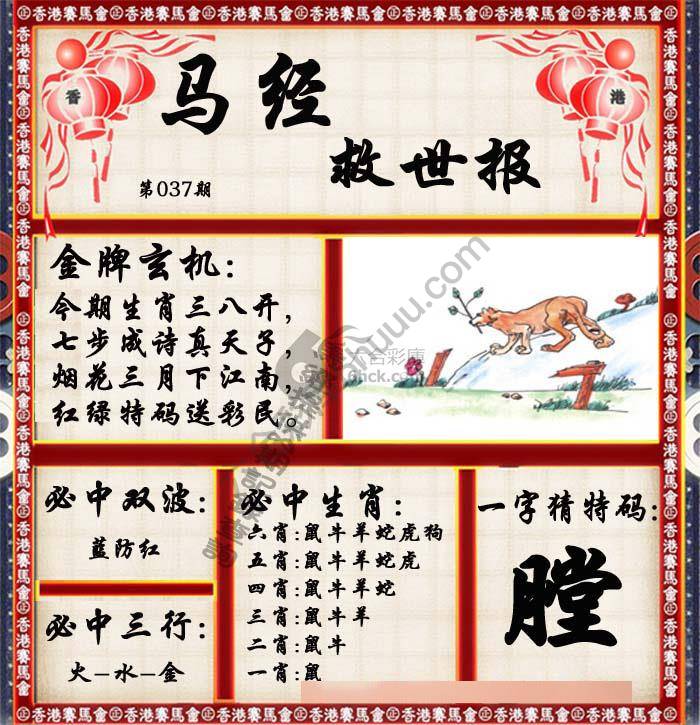 香港
马经
救世报
第037期
金牌玄机:
今期生肖三八开,
七步成诗真天子,
烟花三月下江南,
红绿特码送彩民。
必中双波:
蓝防红
必中三行:
火-水-金
必中生肖:
六肖:鼠牛羊蛇虎狗
五肖:鼠牛羊蛇虎
四肖:鼠牛羊蛇
三肖:鼠牛羊
二肖:鼠牛
一肖:鼠
一字猜特码:
膛
香港賽馬會